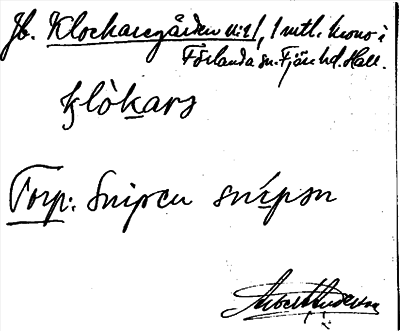 Jb. Klockaregården nr 1, 1 mtl. krono i
Förlanda sn. Fjäre hd. Hall.
klòkars
Torp: Snipen snípən